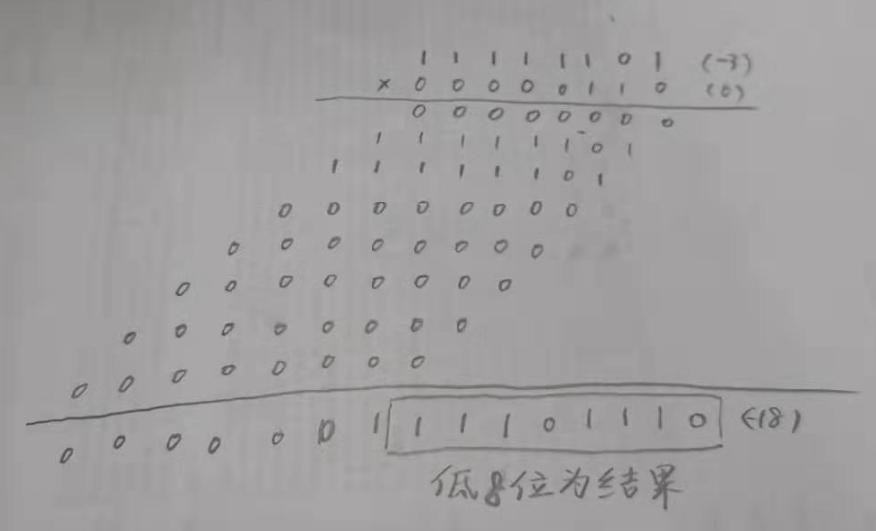 1 1 1 1 1 1 0 1 (-3)
× 0 0 0 0 0 1 1 0 (6)
0 0 0 0 0 0 0 0
1 1 1 1 1 1 0 1
1 1 1 1 1 1 0 1
0 0 0 0 0 0 0 0
0 0 0 0 0 0 0 0
0 0 0 0 0 0 0 0
0 0 0 0 0 0 0 0
0 0 0 0 0 0 0 0
0 0 0 0 0 0 1 1 1 1 0 1 1 1 0 (-18)
低8位为结果